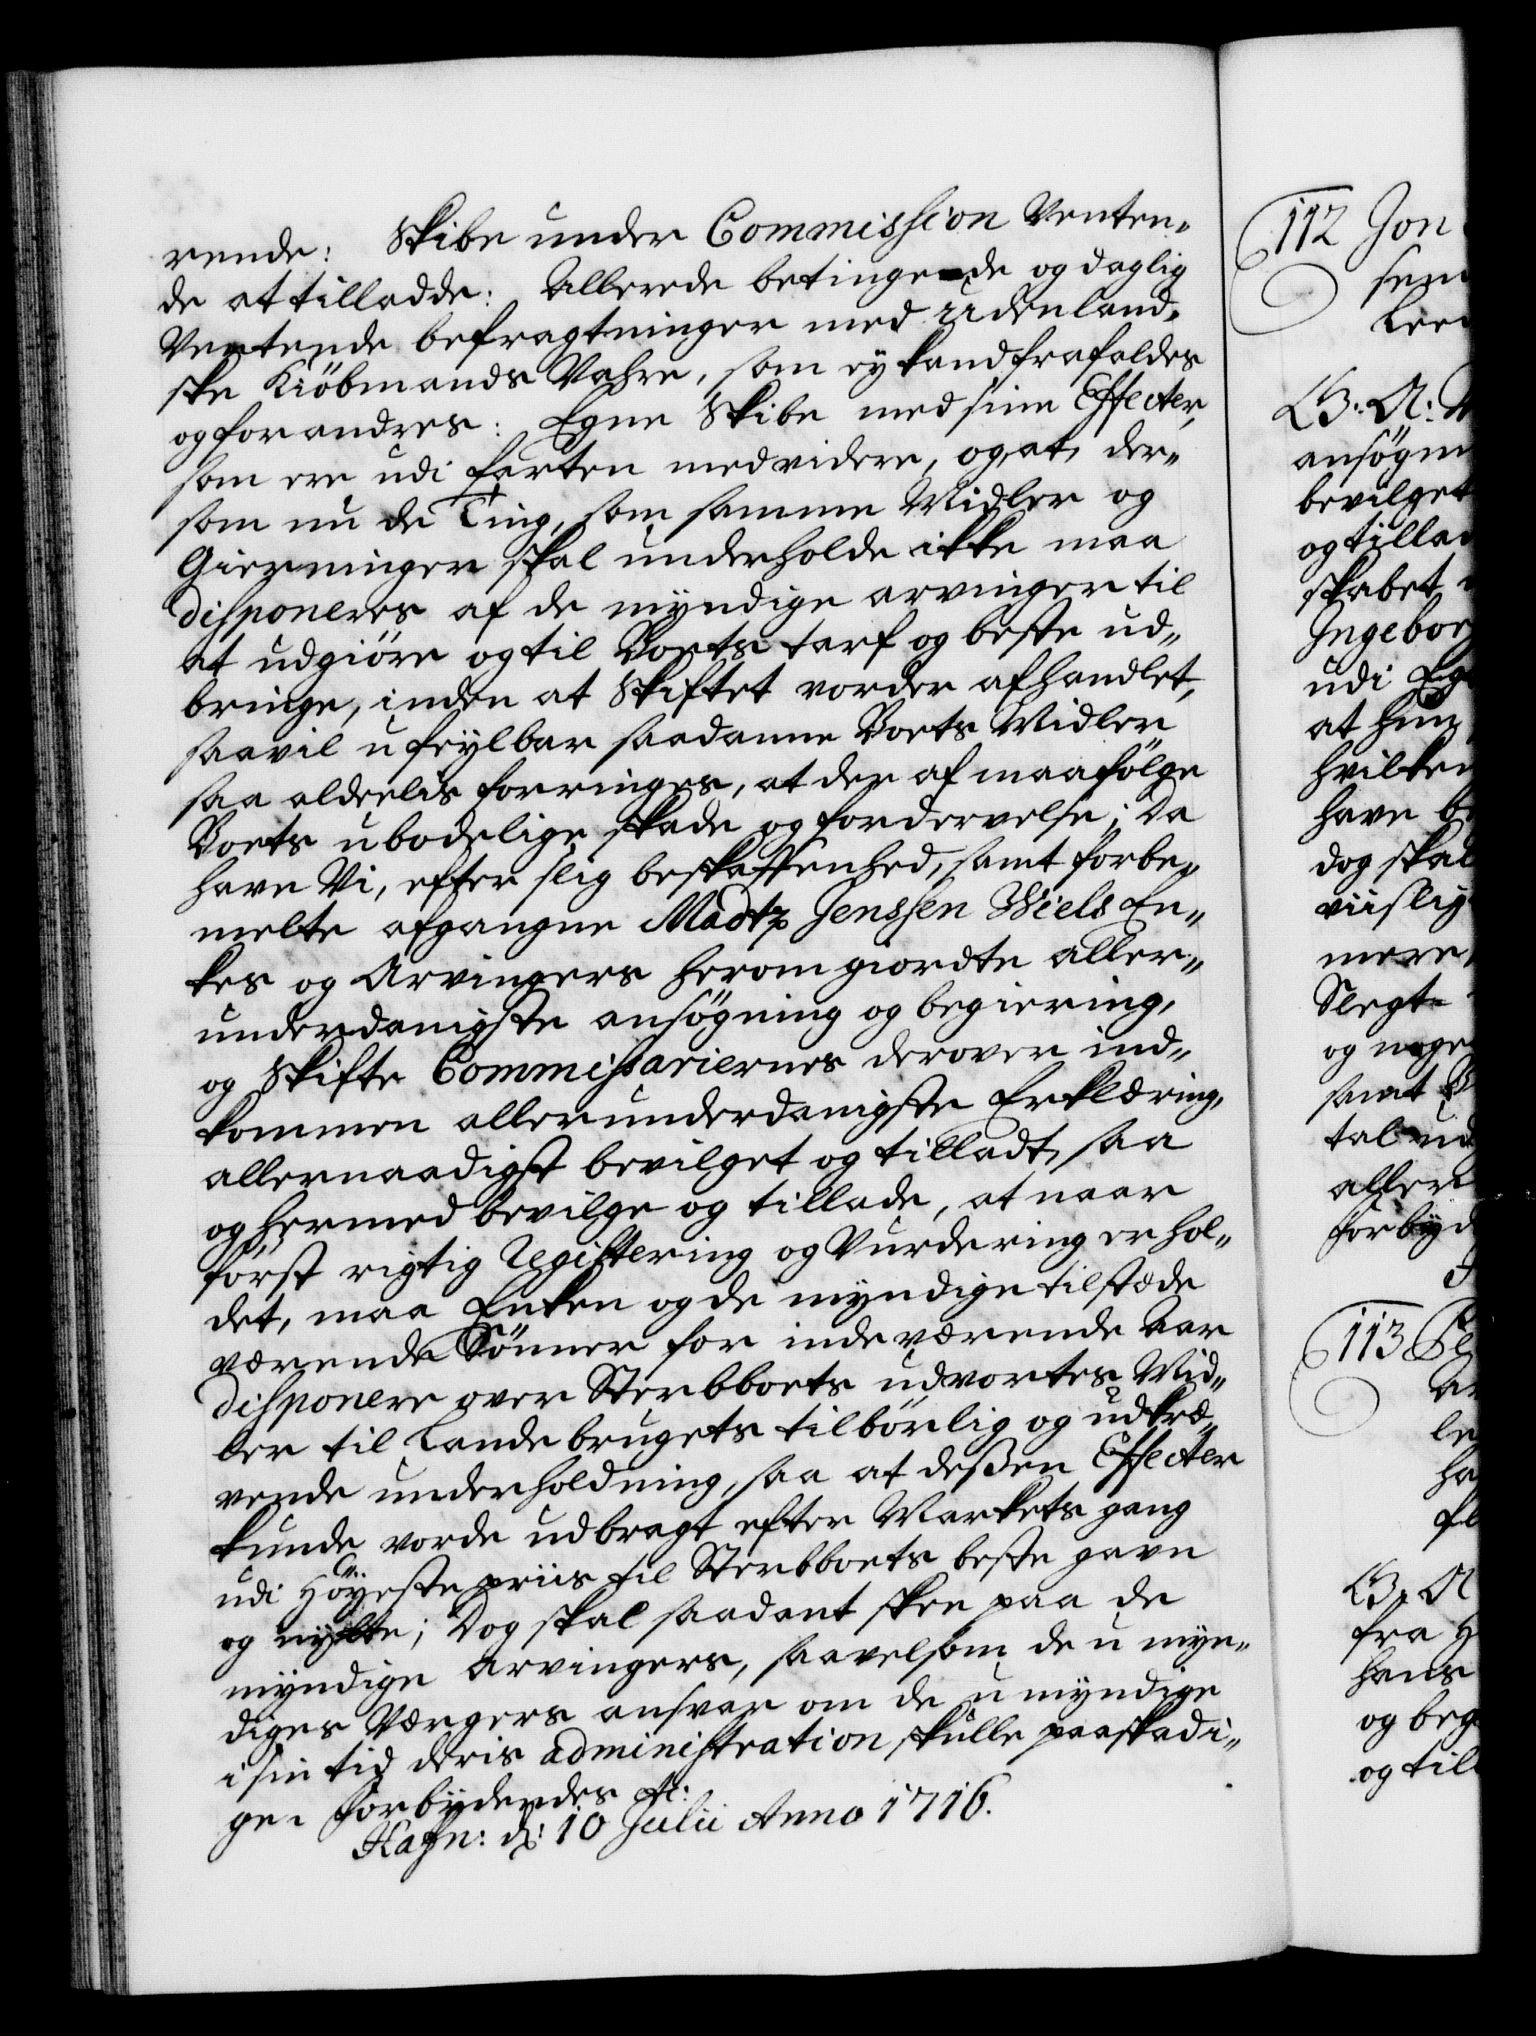 rende: Skibe under Commission Venten„
de at tilladde: Allerede betingede og daglig
Ventende befragtninger med Udenland„
ske Kiöbmands Vahre, som ey kand frafaldes
og forandres: Egne Skibe med sine Effecter,
som ere udi farten med videre, og at, der„
som nu de Ting, som samme Midler og
Gierninger skal underholde ikke maa
disponeres af de myndige arvinger til
at udgiöre og til Boets tarf og beste ud„
bringe, inden at Skiftet vorder afhandlet,
saa vil ufeylbar saadanne Boets Midler
saa aldeelis forringes, at der af maa fölge
Boets ubodelige skade og fordervelse; Da
have Vi, efter slig beskaffenhed, samt forbe„
melte afgangne Madtz Jenssen Wiels En„
kes og Arvingers herom giordte aller„
underdanigste ansögning og begiering,
og Skifte Commissariernes derover ind„
kommen allerunderdanigste Erklæring,
allernaadigst bevilget og tilladt, saa
og hermed bevilge og tillade, at naar
först rigtig Registering og Vurdering er hol„
det, maa Enken og de myndige tilstæde
værende Sönner for indeværende Aar
disponere over Sterbboets udvortes Mid„
ler til Landebrugets tilbörlig og udkræ„
vende underholdning, saa at dessen Effecter
kunde vorde udbragt efter Markets gang
udi Höyeste priis til Sterbboets beste gavn
og nytte; Dog skal saadant skee paa de
myndige Arvingers, saavelsom de u myn„
diges Værgers ansvar om de u myndige
i sin tid deris administration skulle paaskadi„
ge. Forbydendes &c:
Hafn: d: 10 Julii Anno 1716.
112 Jon
B: A:
ansögn
bevilget
og tillad
skabet
Ingebor
udi
at hun
hvilken
have
dog skal
viislig
mere
Slegt
og noge
samt
tal ud
aller
forbyd
113
B: A
fra
hans
og beg
og till